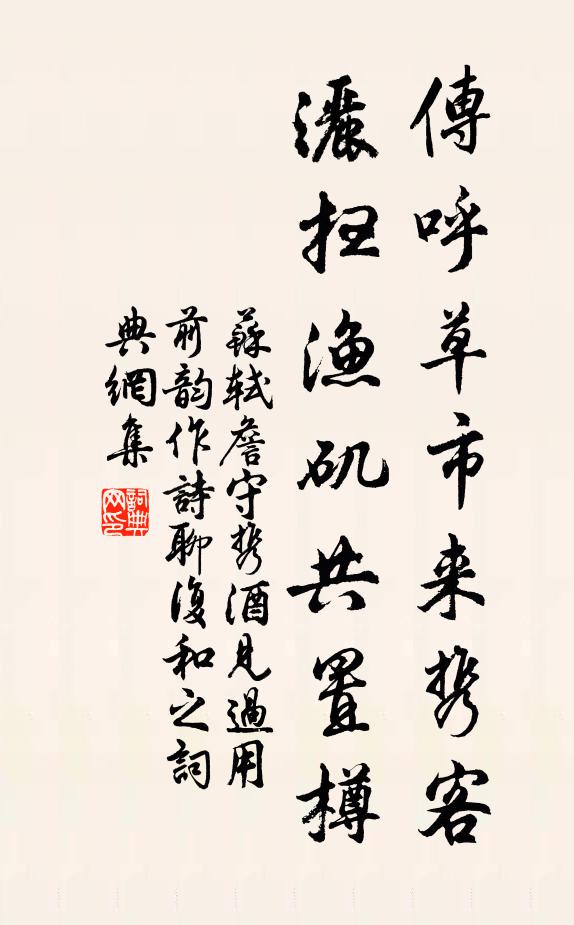 傳呼草市来携客
灑掃漁磯共置樽
蘇軾詹守携酒見過用
前韵作詩聊復和之詞
典網集
詞典网印